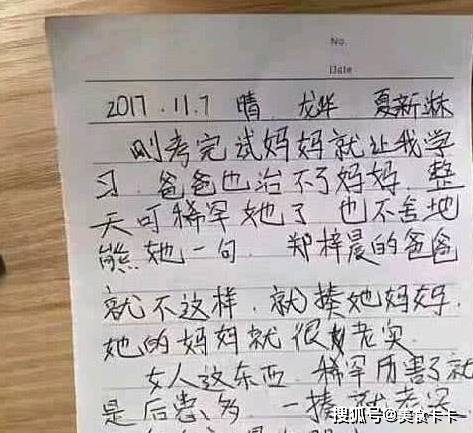 No.
Date
2017.11.7 晴 龙华 夏新淋
刚考完试妈妈就让我学
习.爸爸也治不了妈妈.整
天可稀罕她了 也不舍地
熊她一句. 郑梓晨的爸爸
就不这样.就揍她妈妈.
她的妈妈就很老实.
女人这东西.稀罕历害了就
是后患多.一揍就老实
搜狐号@美食卡卡